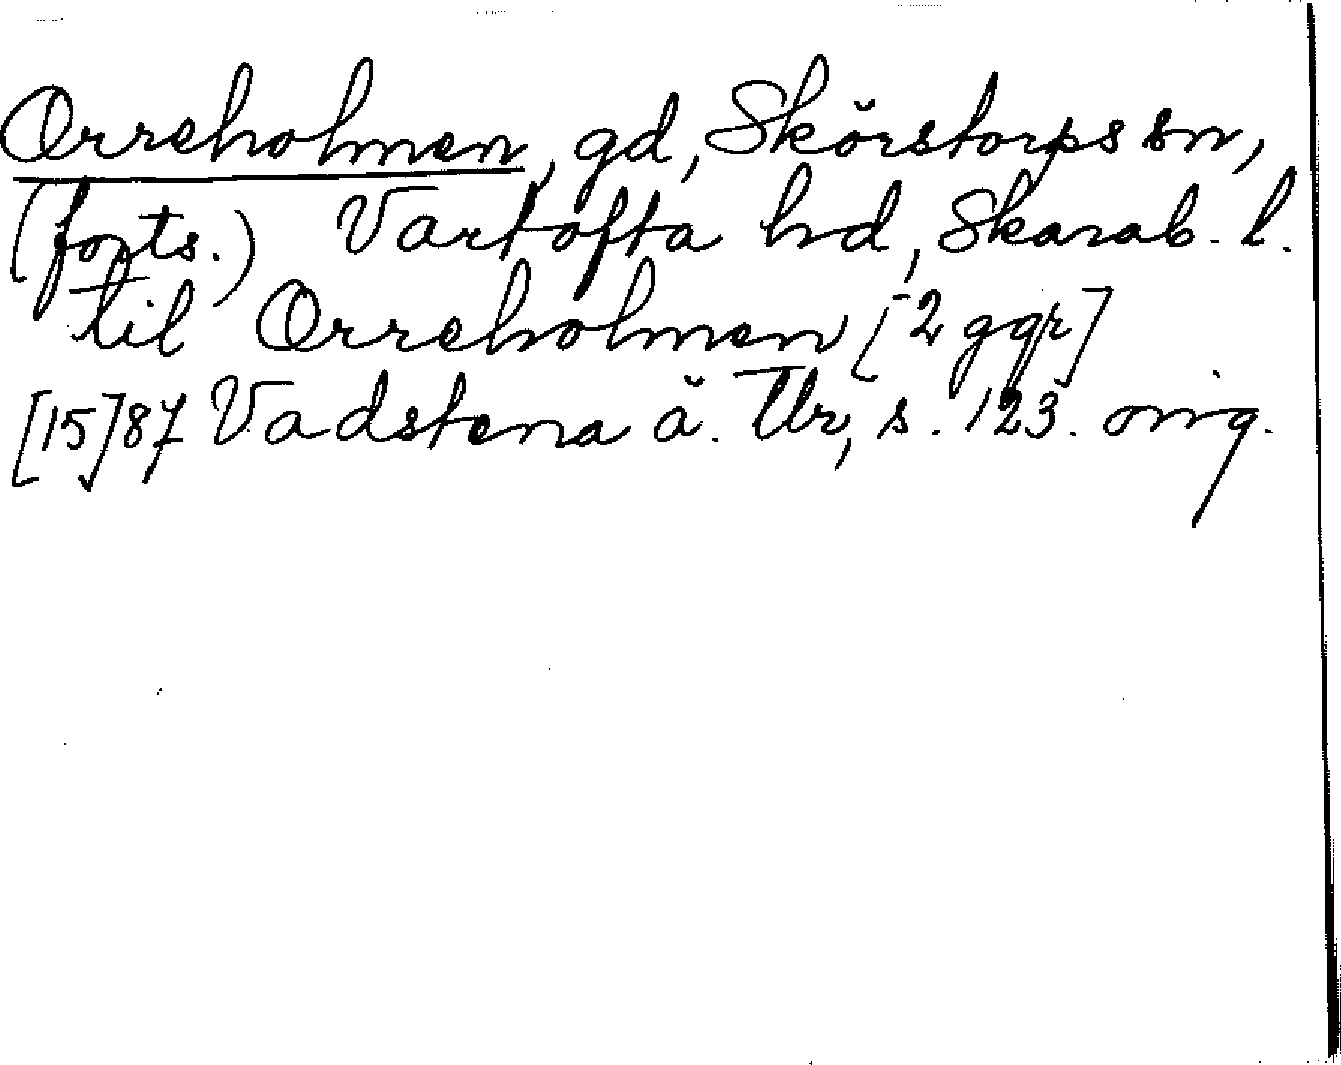 Orreholmen, gd, Skörstorps sn,
(forts.) Vartofta hd, Skarab. l.
til Orreholmen [2 ggr]
[15]87 Vadstena ä. Tb, s. 123. orig.